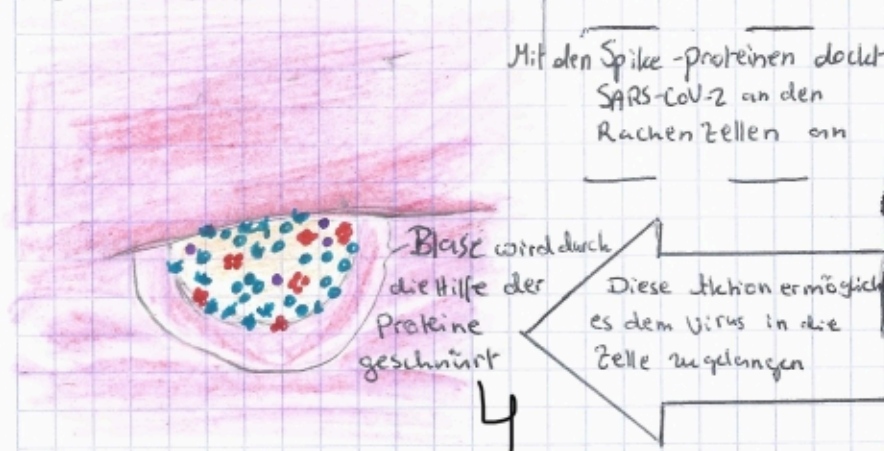 Mit den Spike-proteinen dockt
SARS-CoV-2 an den
Rachenzellen an
Blase wird durch
die Hilfe der
Proteine
geschnürt
Diese Aktion ermöglich
es dem Virus in die
Zelle zugelangen
4